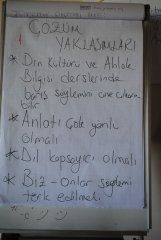 ÇÖZÜM
YAKLAŞIMLARI
* Din Kültürü ve Ahlak
Bilgisi derslerinde
barış söylemini öne çıkara
bilir
* Anlatı çok yönlü
olmalı
* Dil kapsayıcı olmalı
* Biz-onlar söylemi
terk edilmeli